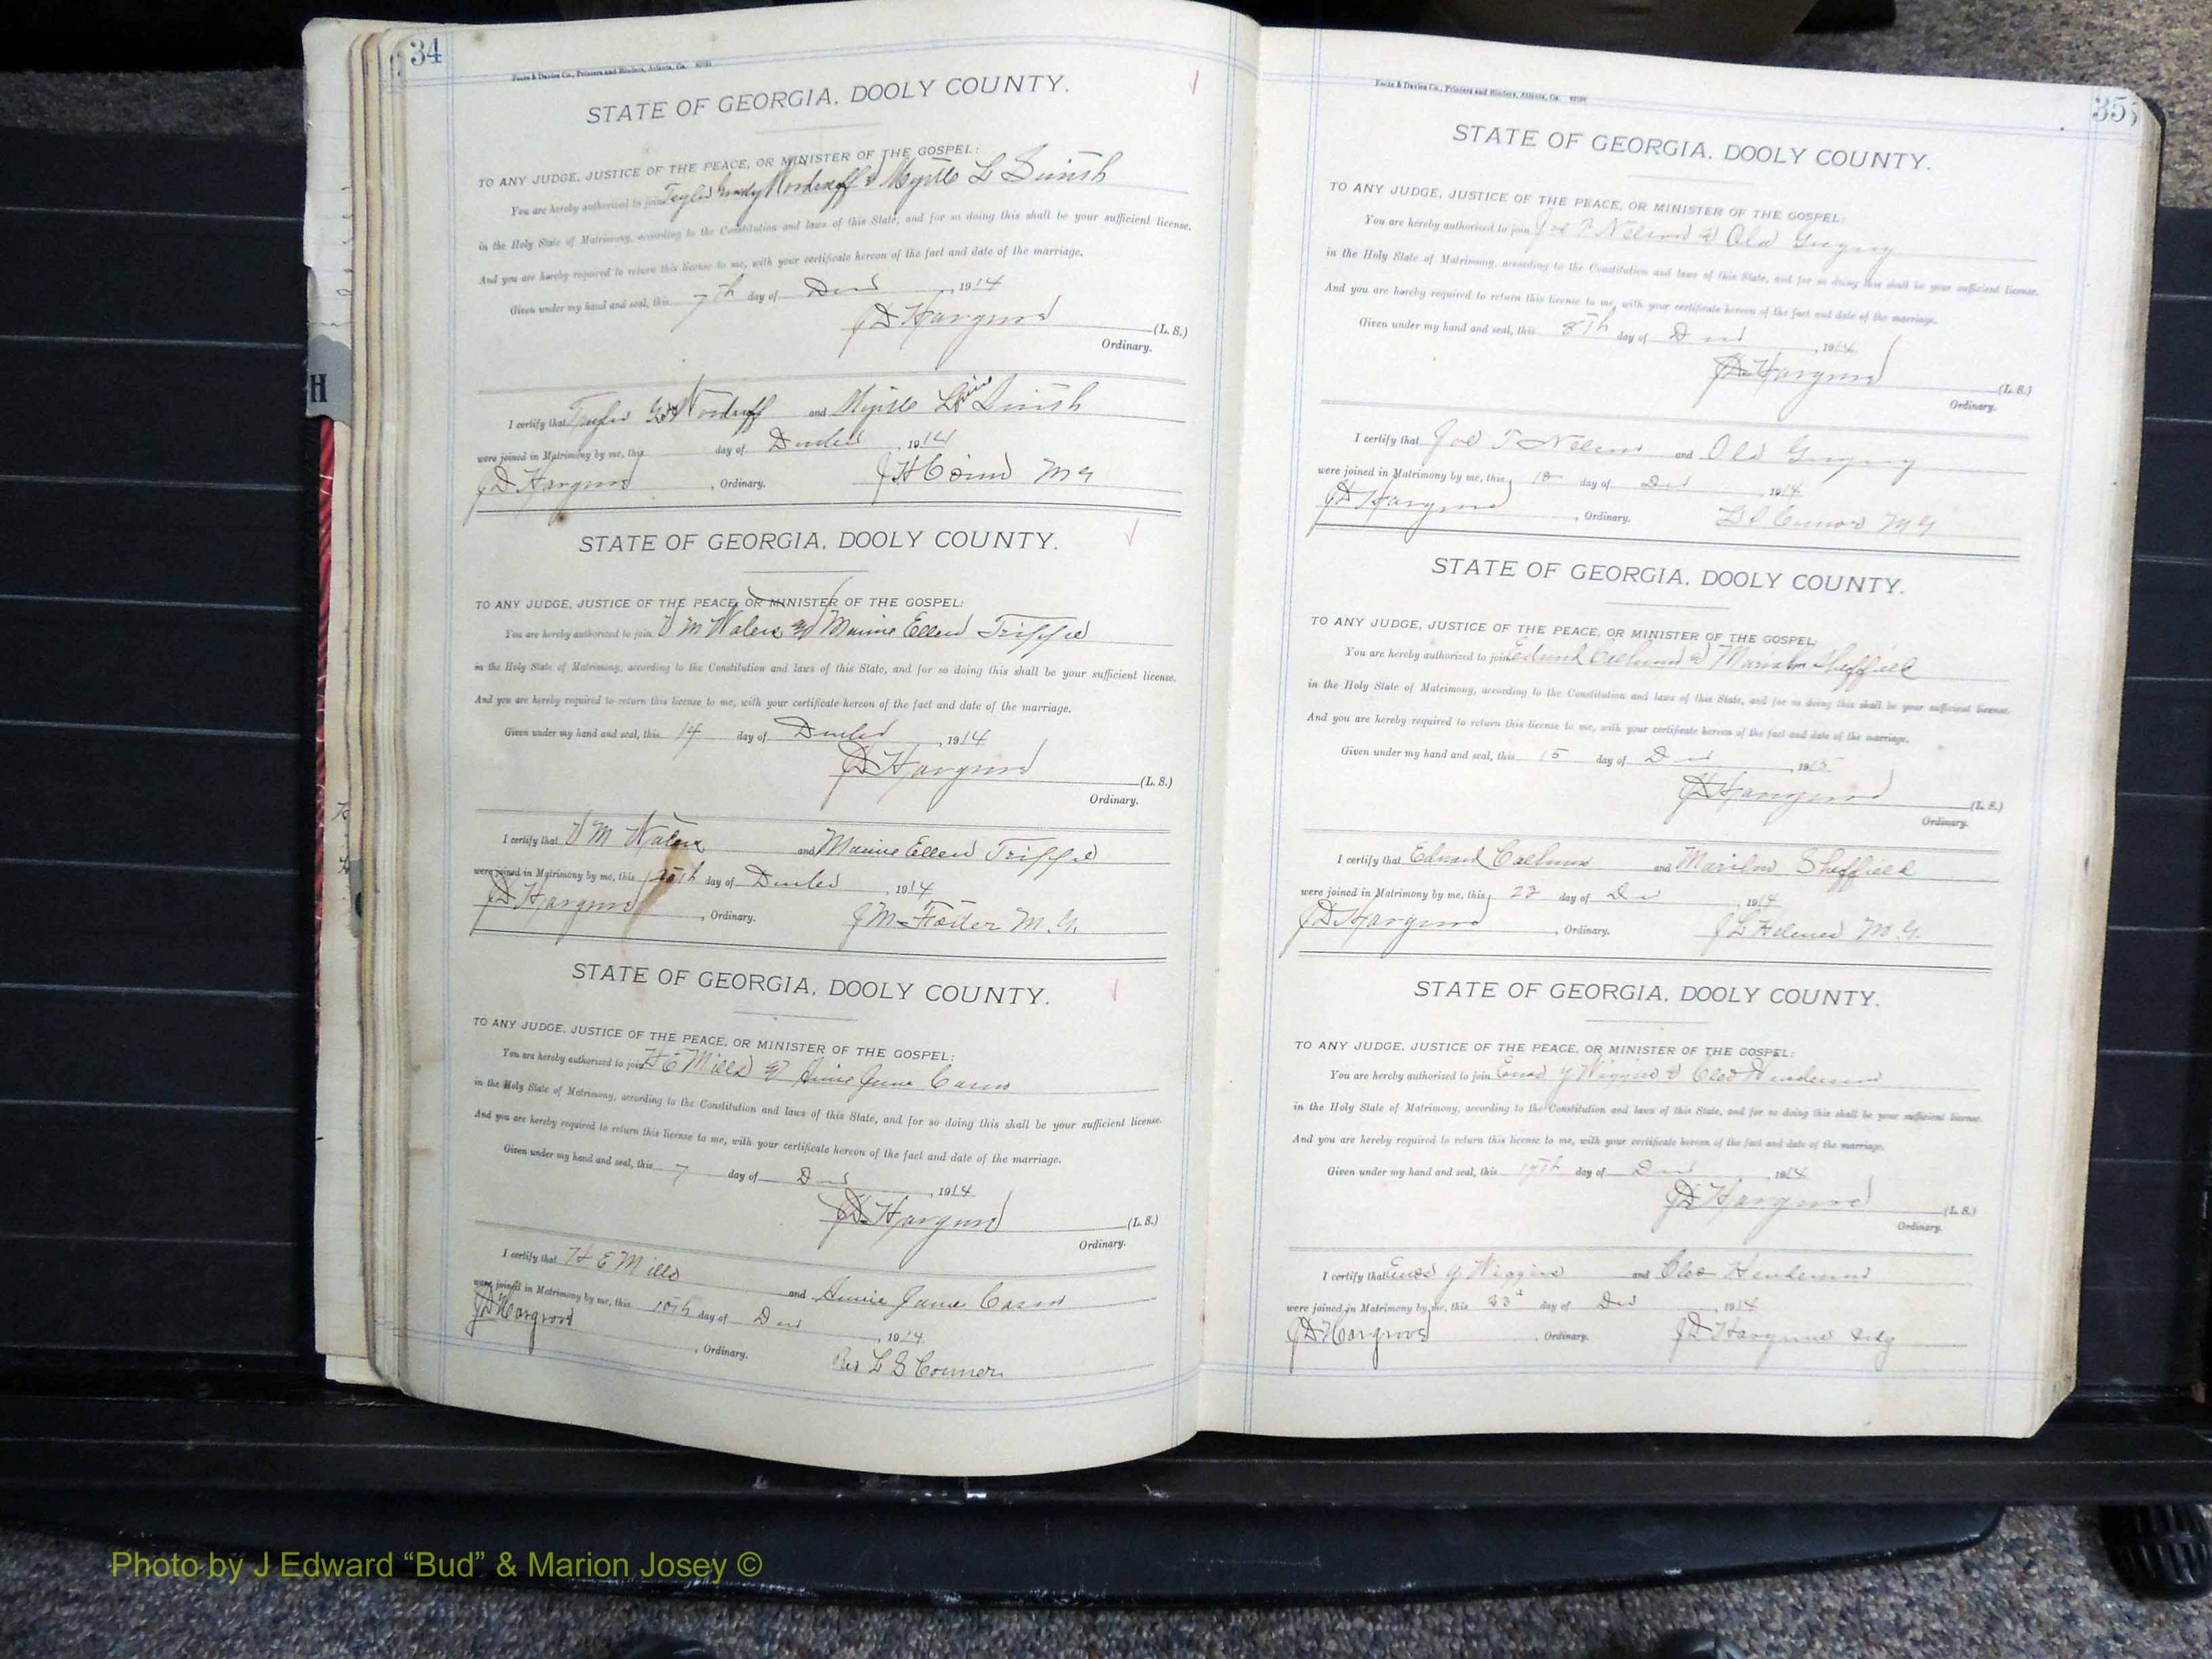 34
Foote & Davies Co., Printers and Binders, Atlanta, Ga.
STATE OF GEORGIA, DOOLY COUNTY.
TO ANY JUDGE, JUSTICE OF THE PEACE, OR MINISTER OF THE GOSPEL:
You are hereby authorized to join Taylor Grady Woodruff & Myrtle L
in the Holy State of Matrimony, according to the Constitution and laws of this State, and for so doing this shall be your sufficient license.
And you are hereby required to return this license to me, with your certificate hereon of the fact and date of the marriage.
Given under my hand and seal, this 7th day of , 1914
JD Hargrove (L. S.)
Ordinary.
I certify that Taylor Woodruff and Myrtle
were joined in Matrimony by me, this day of December , 1914
JD Hargrove , Ordinary. J H MG
STATE OF GEORGIA, DOOLY COUNTY.
TO ANY JUDGE, JUSTICE OF THE PEACE, OR MINISTER OF THE GOSPEL:
You are hereby authorized to join M Waters & Ellen Trippe
in the Holy State of Matrimony, according to the Constitution and laws of this State, and for so doing this shall be your sufficient license.
And you are hereby required to return this license to me, with your certificate hereon of the fact and date of the marriage.
Given under my hand and seal, this 14 day of December , 1914
JD Hargrove (L. S.)
Ordinary.
I certify that M Waters and Ellen Trippe
were joined in Matrimony by me, this day of December , 1914
JD Hargrove , Ordinary. J M Foster M.G.
STATE OF GEORGIA, DOOLY COUNTY.
TO ANY JUDGE, JUSTICE OF THE PEACE, OR MINISTER OF THE GOSPEL:
You are hereby authorized to join H E Mills & Annie Jane
in the Holy State of Matrimony, according to the Constitution and laws of this State, and for so doing this shall be your sufficient license.
And you are hereby required to return this license to me, with your certificate hereon of the fact and date of the marriage.
Given under my hand and seal, this 7 day of , 1914
JD Hargrove (L. S.)
Ordinary.
I certify that H E Mills and Annie Jane
were joined in Matrimony by me, this 10th day of , 1914
JD Hargrove , Ordinary. Rev L S Conner
35
Foote & Davies Co., Printers and Binders, Atlanta, Ga.
STATE OF GEORGIA, DOOLY COUNTY.
TO ANY JUDGE, JUSTICE OF THE PEACE, OR MINISTER OF THE GOSPEL:
You are hereby authorized to join Joe T Nelson &
in the Holy State of Matrimony, according to the Constitution and laws of this State, and for so doing this shall be your sufficient license.
And you are hereby required to return this license to me, with your certificate hereon of the fact and date of the marriage.
Given under my hand and seal, this 8th day of , 1914
JD Hargrove (L. S.)
Ordinary.
I certify that Joe T Nelson and
were joined in Matrimony by me, this day of , 1914
JD Hargrove , Ordinary. MG
STATE OF GEORGIA, DOOLY COUNTY.
TO ANY JUDGE, JUSTICE OF THE PEACE, OR MINISTER OF THE GOSPEL:
You are hereby authorized to join Edward Calhoun & Sheffield
in the Holy State of Matrimony, according to the Constitution and laws of this State, and for so doing this shall be your sufficient license.
And you are hereby required to return this license to me, with your certificate hereon of the fact and date of the marriage.
Given under my hand and seal, this 15 day of , 1915
JD Hargrove (L. S.)
Ordinary.
I certify that Edward Calhoun and Sheffield
were joined in Matrimony by me, this day of , 1914
JD Hargrove , Ordinary. J L M.G.
STATE OF GEORGIA, DOOLY COUNTY.
TO ANY JUDGE, JUSTICE OF THE PEACE, OR MINISTER OF THE GOSPEL:
You are hereby authorized to join Enos Y Wiggins & Cleo Henderson
in the Holy State of Matrimony, according to the Constitution and laws of this State, and for so doing this shall be your sufficient license.
And you are hereby required to return this license to me, with your certificate hereon of the fact and date of the marriage.
Given under my hand and seal, this day of , 1914
JD Hargrove (L. S.)
Ordinary.
I certify that Enos Y Wiggins and Cleo Henderson
were joined in Matrimony by me, this 23d day of , 1914
JD Hargrove , Ordinary. JD Hargrove Ordy
H
Photo by J Edward “Bud” & Marion Josey ©